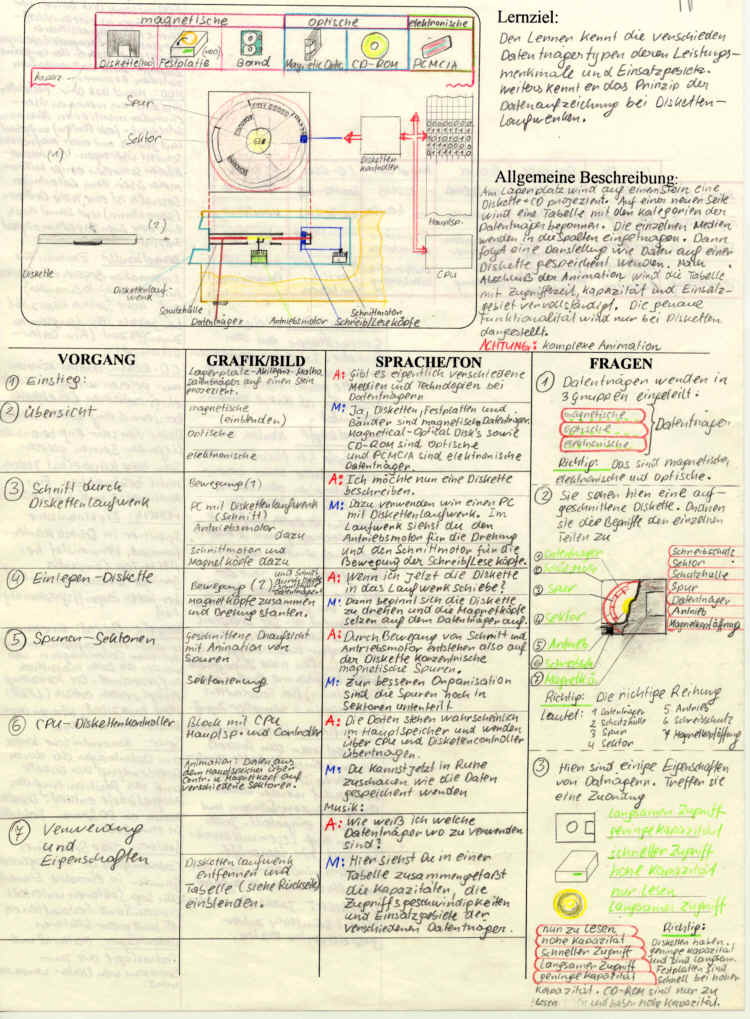 magnetische optische elektronische
Diskette(HD) Festplatte (HDD) Band Magnetic Optic. CD-ROM PCMCIA
Spur
Sektor
(1)
Disketten
Kontroller
Hauptsp.
CPU
(2)
Diskette
Diskettenlauf-
werk
Schutzhülle
Datenträger
Antriebsmotor
Schrittmotor
Schreib/Leseköpfe
Lernziel:
Der Lerner kennt die verschieden
Datenträgertypen deren Leistungs-
merkmale und Einsatzgebiete.
Weiters kennt er das Prinzip der
Datenaufzeichnung bei Disketten-
Laufwerken.
Allgemeine Beschreibung:
Am Lagerplatz wird auf einem Stein eine
Diskette + CD projeziert. Auf einer neuen Seite
wird eine Tabelle mit den Kategorien der
Datenträger begonnen. Die einzelnen Medien
werden in die Spalten eingetragen. Dann
folgt eine Darstellung wie Daten auf einer
Diskette gespeichert werden. Nach
Abschluß der Animation wird die Tabelle
mit Zugriffszeit, Kapazität und Einsatz-
gebiet vervollständigt. Die genaue
Funktionalität wird nur bei Disketten
dargestellt.
ACHTUNG: komplexe Animation
VORGANG GRAFIK/BILD SPRACHE/TON FRAGEN
① Einstieg:
Lagerplatz-
Datenträger auf einen Stein
projeziert.
A: Gibt es eigentlich verschiedene
Medien und Technologien bei
Datenträgern
② Übersicht
magnetische
(einblenden)
optische
elektronische
M: Ja, Disketten, Festplatten und
Bänder sind magnetische Datenträger.
Magnetical-Optical Disk's sowie
CD-ROM sind optische
und PCMCIA sind elektronische
Datenträger.
③ Schnitt durch
Diskettenlaufwerk
Bewegung (1)
PC mit Diskettenlaufwerk
(Schnitt)
Antriebsmotor
dazu
Schrittmotor und
Magnetköpfe dazu
A: Ich möchte nun eine Diskette
beschreiben.
M: Dazu verwenden wir einen PC
mit Diskettenlaufwerk. Im
Laufwerk siehst du den
Antriebsmotor für die Drehung
und den Schrittmotor für die
Bewegung der Schreib/Lese Köpfe.
④ Einlegen-Diskette
Bewegung (2)
Magnetköpfe zusammen
und Drehung starten.
A: Wenn ich jetzt die Diskette
in das Laufwerk schiebe?
M: Dann beginnt sich die Diskette
zu drehen und die Magnetköpfe
setzen auf dem Datenträger auf.
⑤ Spuren-Sektoren
Geschnittene Draufsicht
mit Animation von
Spuren
Sektorierung
A: Durch Bewegung von Schritt und
Antriebsmotor entstehen also auf
der Diskette konzentrische
magnetische Spuren.
M: Zur besseren Organisation
sind die Spuren noch in
Sektoren unterteilt
⑥ CPU-Diskettenkontroller
Block mit CPU
Hauptsp. und Controller
Animation: Daten aus
dem Hauptspeicher über
Contr. u. Magnetkopf auf
verschiedene Sektoren.
A: Die Daten stehen wahrscheinlich
im Hauptspeicher und werden
über CPU und Diskettencontroller
übertragen.
M: Du kannst jetzt in Ruhe
zuschauen wie die Daten
gespeichert werden
Musik:
⑦ Verwendung
und
Eigenschaften
Diskettenlaufwerk
entfernen und
Tabelle (siehe Rückseite)
einblenden.
A: Wie weiß ich welche
Datenträger wo zu verwenden
sind?
M: Hier siehst Du in einer
Tabelle zusammengefaßt
die Kapazitäten, die
Zugriffsgeschwindigkeiten
und Einsatzgebiete der
verschiedenen Datenträger.
① Datenträger werden in
3 Gruppen eingeteilt.
magnetische
optische
elektronische
Datenträger
Richtig: Das sind magnetische,
elektronische und optische.
② Sie sehen hier eine auf-
geschnittene Diskette. Ordnen
sie die Begriffe den einzelnen
Teilen zu
① Datenträger
② Schutzhülle
③ Spur
④ Sektor
⑤ Antrieb
⑥ Schreibsch.
⑦ Magnetkö.
Schreibschutz
Sektor
Schutzhülle
Spur
Datenträger
Antrieb
Magnetkopföffnung
Richtig: Die richtige Reihung
lautet: 1 Datenträger 5 Antrieb
2 Schutzhülle 6 Schreibschutz
3 Spur 7 Magnetkopföffnung
4 Sektor
③ Hier sind einige Eigenschaften
von Datträgern. Treffen sie
eine Zuordung
langsamen Zugriff
geringe Kapazität
schneller Zugriff
hohe Kapazität
nur Lesen
langsamer Zugriff
nur zu lesen
hohe Kapazität
schneller Zugriff
langsamer Zugriff
geringe Kapazität
Richtig:
Disketten haben
geringe Kapazität
und sind langsam.
Festplatten sind
schnell bei hoher
Kapazität. CD-ROM sind nur zu
lesen und haben hohe Kapazität.